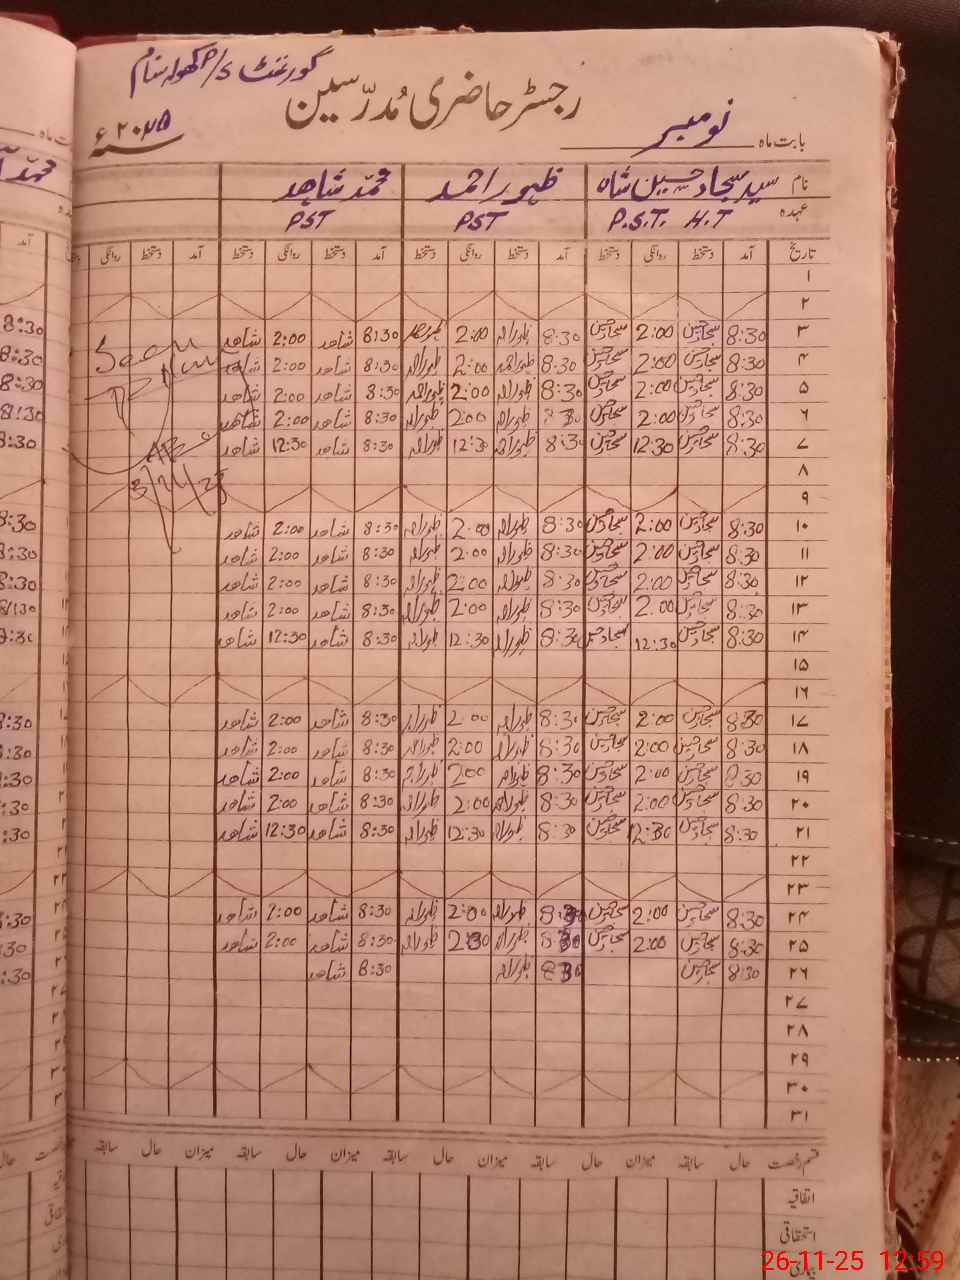 گورنمنٹ P/S کھولہ ستام
رجسٹر حاضری مُدرّسین
بابت ماہ نومبر ۲۰۲۵ء
نام سید سجاد حسین شاہ ظہور احمد محمد شاھد
عہدہ P.S.T. H.T PST PST
تاریخ آمد دستخط روانگی دستخط آمد دستخط روانگی دستخط آمد دستخط روانگی دستخط آمد دستخط روانگی
۱
۲
۳ 8:30 سجاد حسین 2:00 سجاد حسین 8:30 ظہور احمد 2:00 ظہور احمد 8:30 شاھد 2:00 شاھد Seen
۴ 8:30 سجاد حسین 2:00 سجاد حسین 8:30 ظہور احمد 2:00 ظہور احمد 8:30 شاھد 2:00 شاھد
۵ 8:30 سجاد حسین 2:00 سجاد حسین 8:30 ظہور احمد 2:00 ظہور احمد 8:30 شاھد 2:00 شاھد
۶ 8:30 سجاد حسین 2:00 سجاد حسین 8:30 ظہور احمد 2:00 ظہور احمد 8:30 شاھد 2:00 شاھد
۷ 8:30 سجاد حسین 12:30 سجاد حسین 8:30 ظہور احمد 12:30 ظہور احمد 8:30 شاھد 12:30 شاھد
۸
۹
۱۰ 8:30 سجاد حسین 2:00 سجاد حسین 8:30 ظہور احمد 2:00 ظہور احمد 8:30 شاھد 2:00 شاھد
۱۱ 8:30 سجاد حسین 2:00 سجاد حسین 8:30 ظہور احمد 2:00 ظہور احمد 8:30 شاھد 2:00 شاھد
۱۲ 8:30 سجاد حسین 2:00 سجاد حسین 8:30 ظہور احمد 2:00 ظہور احمد 8:30 شاھد 2:00 شاھد
۱۳ 8:30 سجاد حسین 2:00 سجاد حسین 8:30 ظہور احمد 2:00 ظہور احمد 8:30 شاھد 2:00 شاھد
۱۴ 8:30 سجاد حسین 12:30 سجاد حسین 8:30 ظہور احمد 12:30 ظہور احمد 8:30 شاھد 12:30 شاھد
۱۵
۱۶
۱۷ 8:30 سجاد حسین 2:00 سجاد حسین 8:30 ظہور احمد 2:00 ظہور احمد 8:30 شاھد 2:00 شاھد
۱۸ 8:30 سجاد حسین 2:00 سجاد حسین 8:30 ظہور احمد 2:00 ظہور احمد 8:30 شاھد 2:00 شاھد
۱۹ 8:30 سجاد حسین 2:00 سجاد حسین 8:30 ظہور احمد 2:00 ظہور احمد 8:30 شاھد 2:00 شاھد
۲۰ 8:30 سجاد حسین 2:00 سجاد حسین 8:30 ظہور احمد 2:00 ظہور احمد 8:30 شاھد 2:00 شاھد
۲۱ 8:30 سجاد حسین 12:30 سجاد حسین 8:30 ظہور احمد 12:30 ظہور احمد 8:30 شاھد 12:30 شاھد
۲۲
۲۳
۲۴ 8:30 سجاد حسین 2:00 سجاد حسین 8:30 ظہور احمد 2:00 ظہور احمد 8:30 شاھد 2:00 شاھد
۲۵ 8:30 سجاد حسین 2:00 سجاد حسین 8:30 ظہور احمد 2:30 ظہور احمد 8:30 شاھد 2:00 شاھد
۲۶ 8:30 سجاد حسین 8:30 ظہور احمد 8:30 شاھد
۲۷
۲۸
۲۹
۳۰
۳۱
قسم رخصت حال سابقہ میزان حال سابقہ میزان حال سابقہ میزان حال سابقہ میزان حال سابقہ
اتفاقیہ
استحقاقی
بیماری
26-11-25 12:59